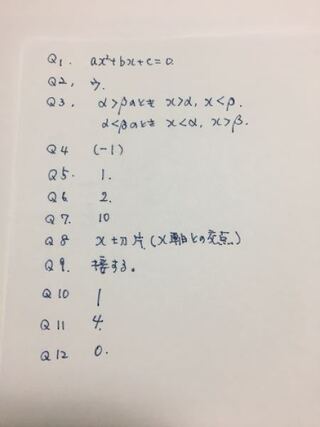 Q1. ax²+bx+c=0.
Q2, ウ.
Q3. α>βのとき x>α, x<β.
α<βのとき x<α, x>β.
Q4 (-1)
Q5. 1.
Q6 2.
Q7. 10
Q8 x切片(x軸との交点)
Q9. 接する。
Q10 1
Q11 4.
Q12 0.